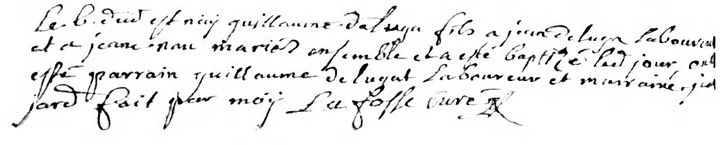 Le 6. dud est nay guillaume deluga fils a jean deluga laboureur
et a jeane nau mariés ensemble et a esté baptizé led jour ont
esté parrain guillaume delugat laboureur et marraine
jard fait par moy La fosse Curé